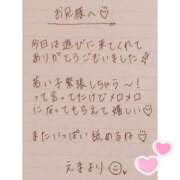 お兄様へ♡
今日は遊びに来てくれて
ありがとうございました
若い子緊張しちゃう〜！
って言ってたけどメロメロ
になってもらえて嬉しい♡
またいっぱい舐めるね♡
えまより